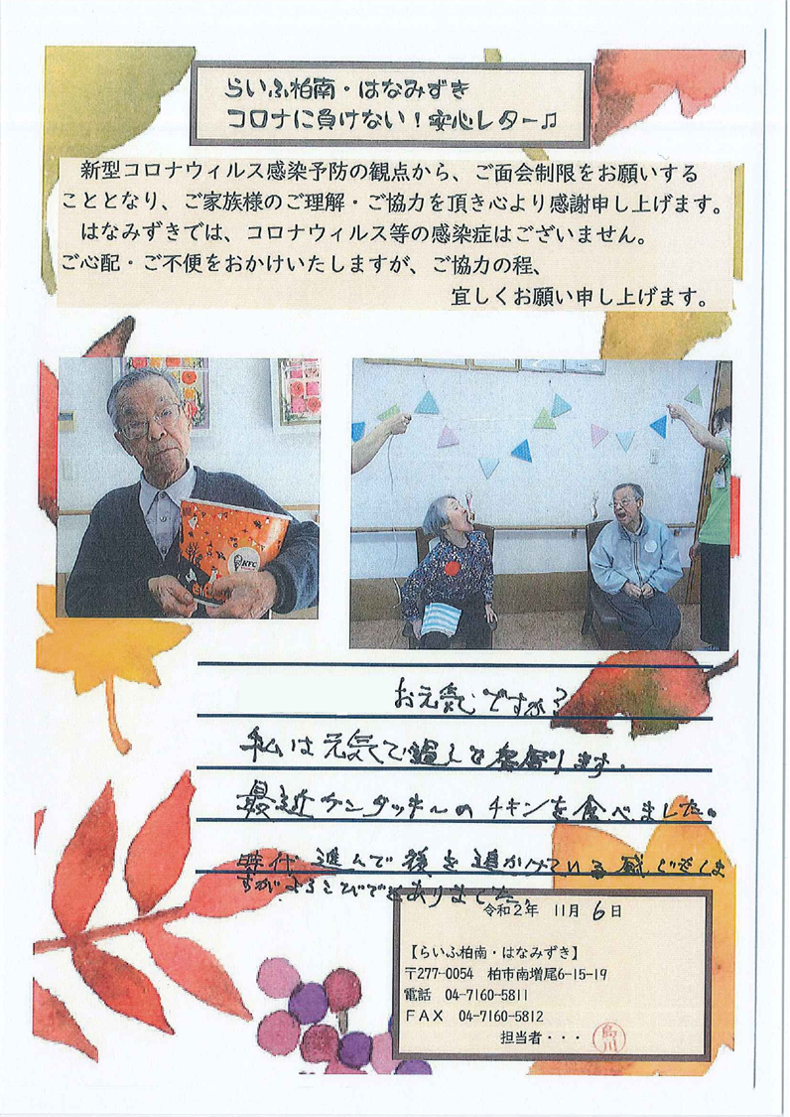 らいふ柏南・はなみずき
コロナに負けない！安心レター♫
新型コロナウィルス感染予防の観点から、ご面会制限をお願いする
こととなり、ご家族様のご理解・ご協力を頂き心より感謝申し上げます。
はなみずきでは、コロナウィルス等の感染症はございません。
ご心配・ご不便をおかけいたしますが、ご協力の程、
宜しくお願い申し上げます。
KFC
お元気ですか？
私は元気で過して居ります。
最近ケンタッキーのチキンを食べました。
時代 進んで後を追かけている感じをしま
すがよろこびでもありました。
令和2年 11月 6日
【らいふ柏南・はなみずき】
〒277-0054 柏市南増尾6-15-19
電話 04-7160-5811
ＦＡＸ 04-7160-5812
担当者・・・